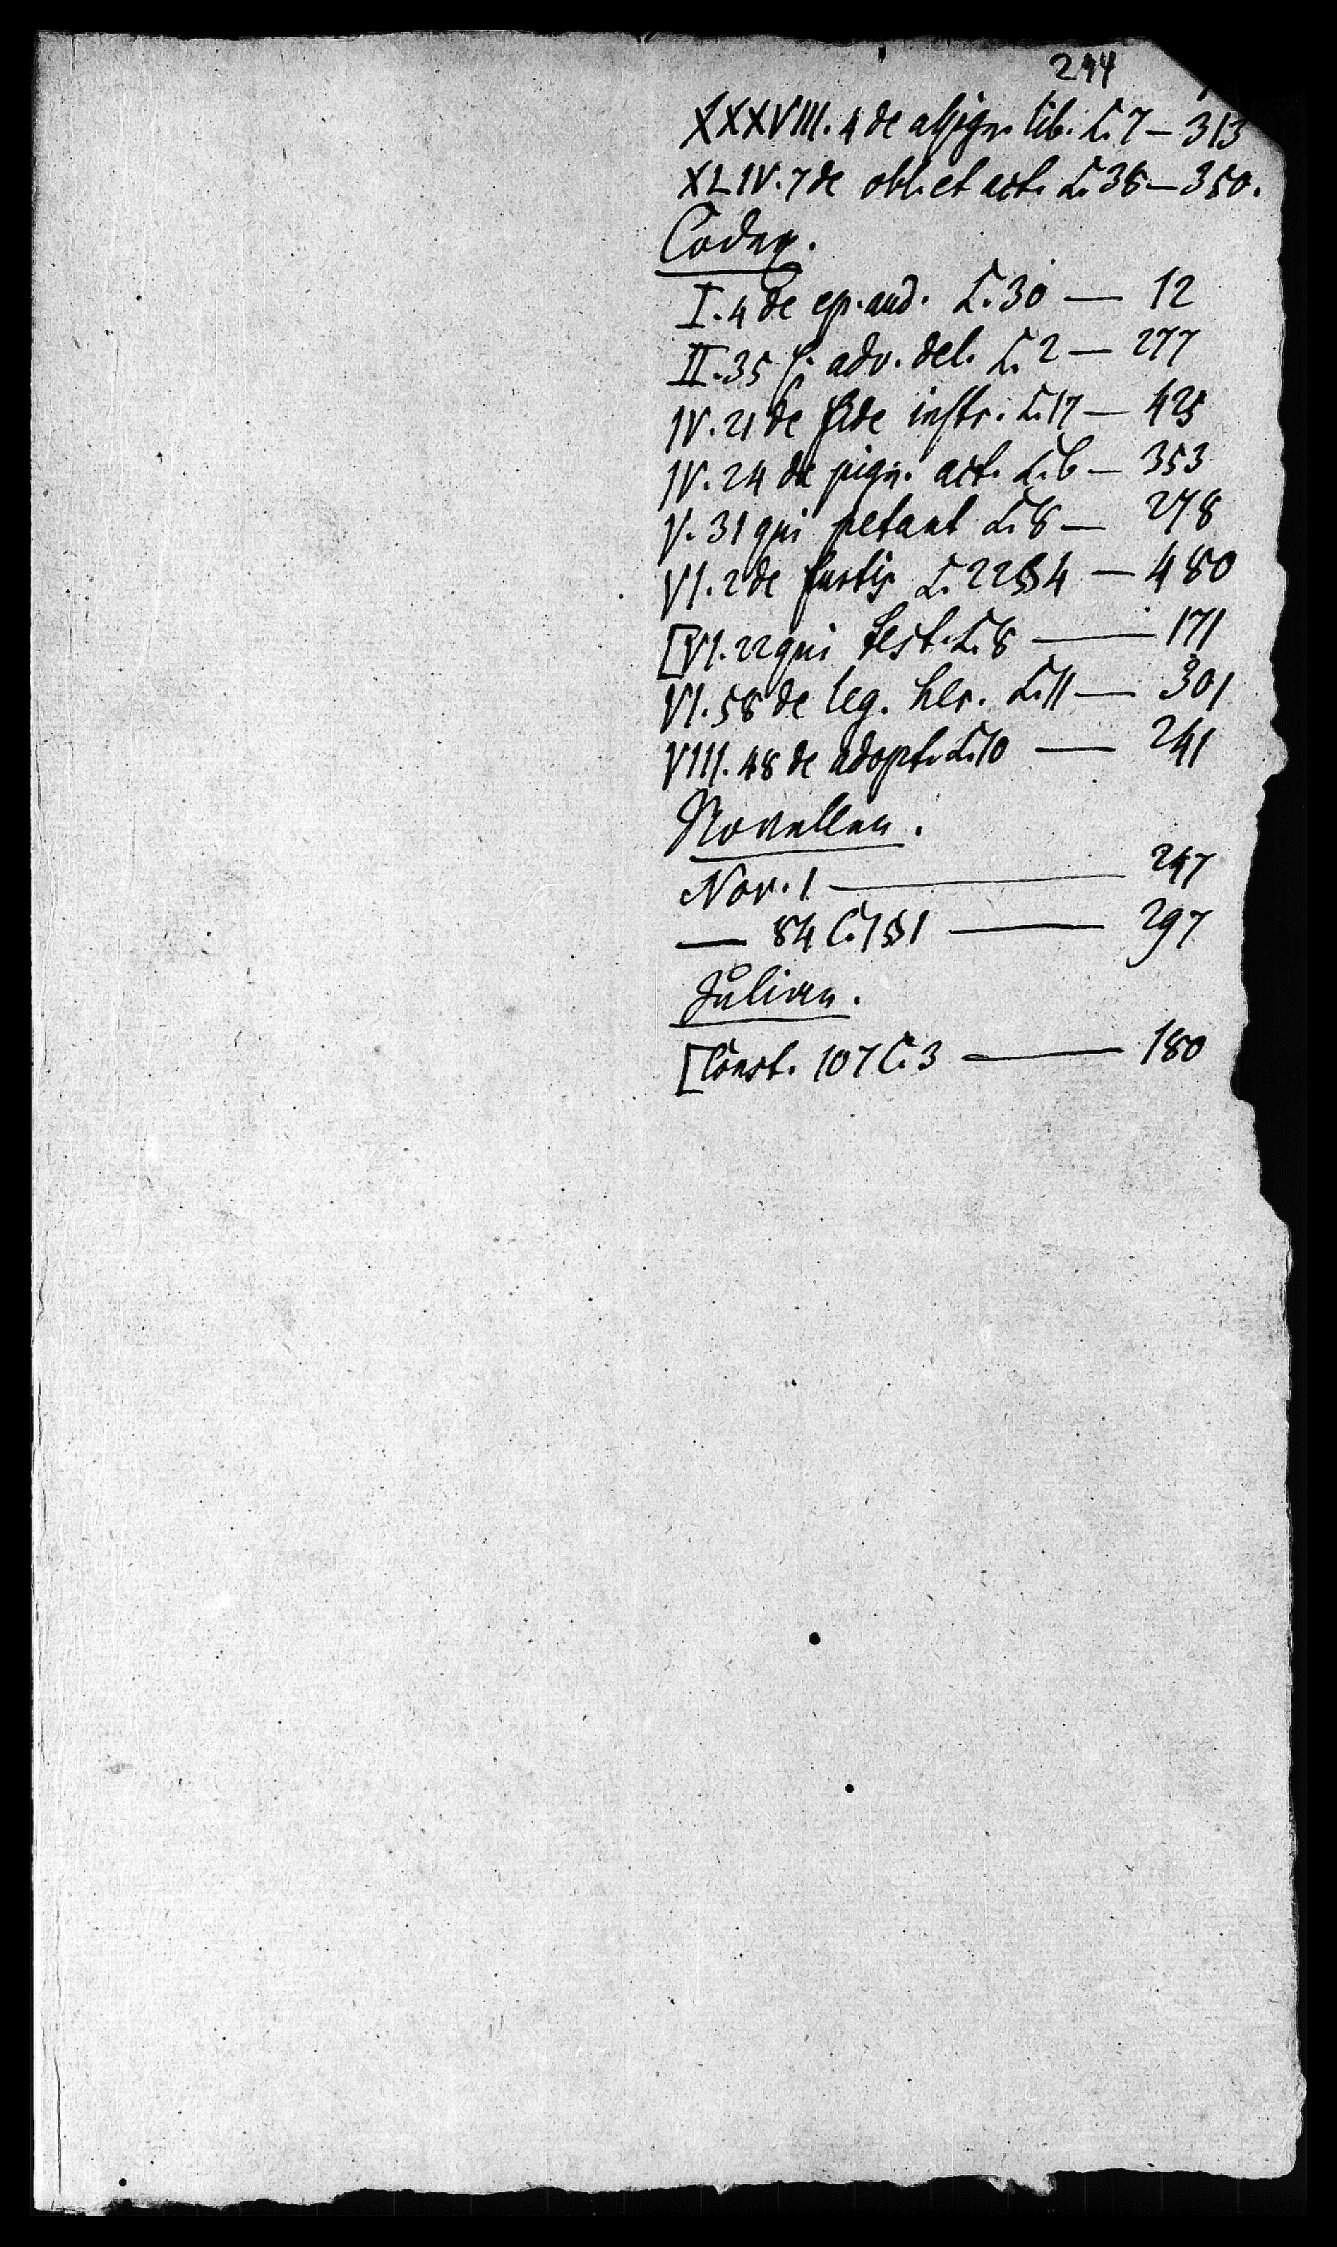 244
XXXVIII. 4 de assign. lib. L. 7 — 313
XLIV. 7 de obl. et act. L. 38 — 350.
Codex.
I. 4 de ep. aud. L. 30 — 12
II. 35 si adv. del. L. 2 — 277
IV. 21 de fide instr. L. 17 — 425
IV. 24 de pign. act. L. 6 — 353
V. 31 qui petant L. 8 — 278
VI. 2 de furtis L. 22 § 4 — 480
[VI. 22 qui test. L. 8 — 171
VI. 58 de leg. her. L. 11 — 301
VIII. 48 de adopt. L. 10 — 241
Novellen.
Nov. 1 — 247
— 84 C. 1 § 1 — 297
Julian.
[Const. 107 C. 3 — 180